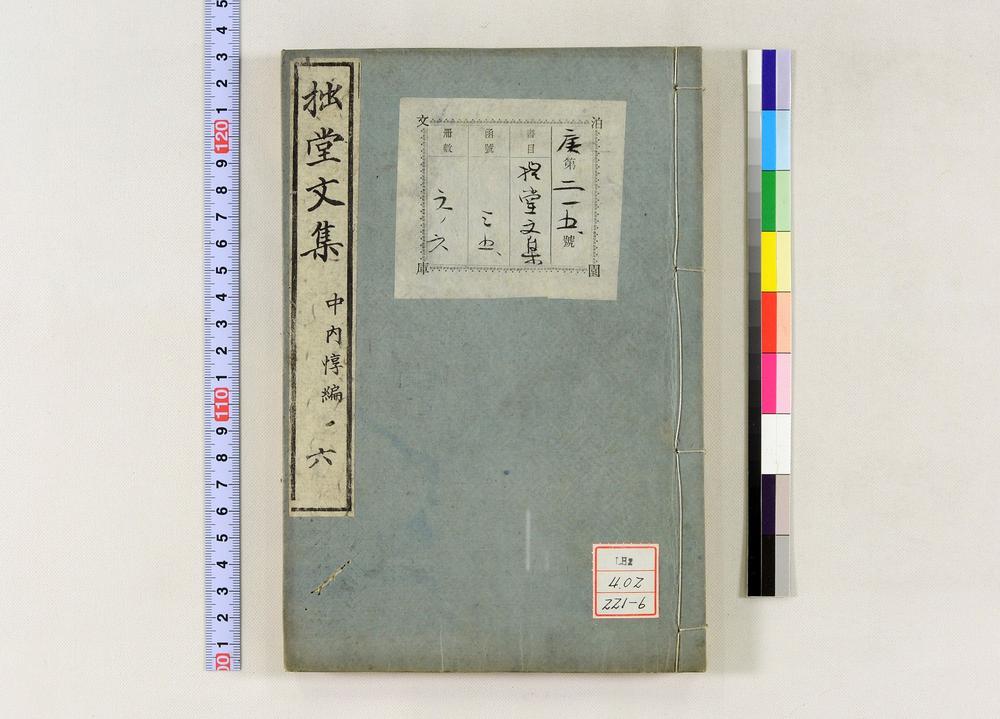 拙堂文集 中内惇編 六
泊園文庫
第二一五號
書目 拙堂文集
函號 三五
冊數 六ノ六
LH2
4.02
9-122
100 1 2 3 4 5 6 7 8 9 110 1 2 3 4 5 6 7 8 9 120 1 2 3 4 5